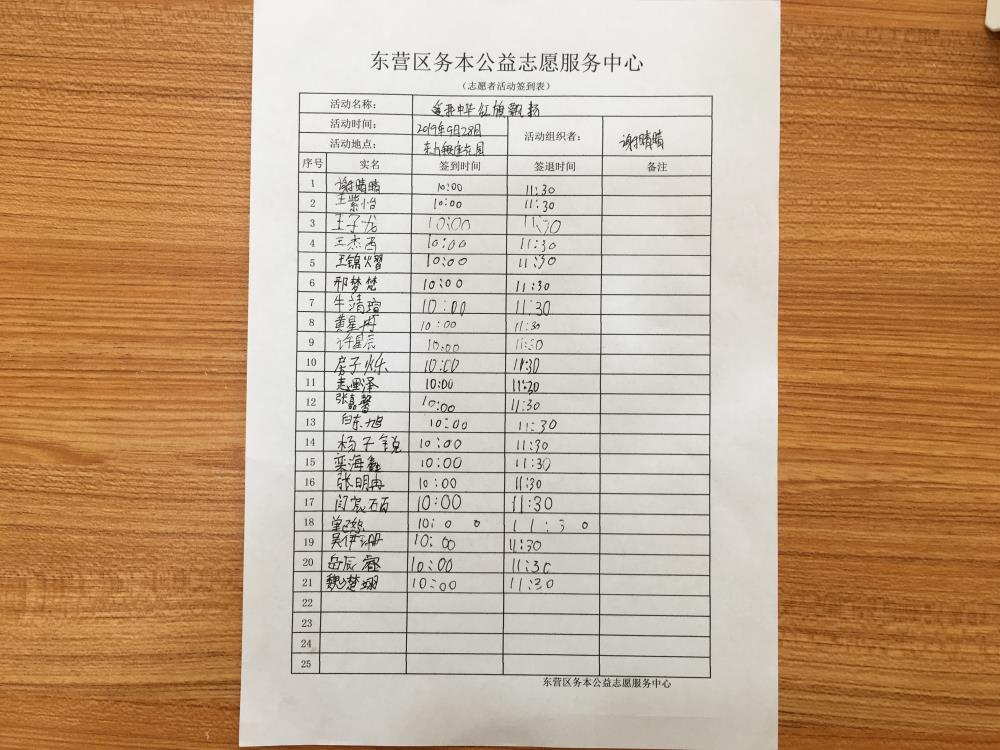 东营区务本公益志愿服务中心
（志愿者活动签到表）
活动名称： 中华 红旗飘扬
活动时间： 2019年9月28日 活动组织者： 谢晴晴
活动地点： 花园
序号 实名 签到时间 签退时间 备注
1 谢晴晴 10:00 11:30
2 王紫怡 10:00 11:30
3 王子龙 10:00 11:30
4 王杰西 10:00 11:30
5 王锦熠 10:00 11:30
6 邢梦梵 10:00 11:30
7 牛靖瑄 10:00 11:30
8 黄星冉 10:00 11:30
9 许星辰 10:00 11:30
10 房子烁 10:00 11:30
11 10:00 11:30
12 张嘉馨 10:00 11:30
13 白东旭 10:00 11:30
14 杨子锐 10:00 11:30
15 栾海鑫 10:00 11:30
16 张明冉 10:00 11:30
17 闫宸硕 10:00 11:30
18 10:00 11:30
19 吴伊珊 10:00 11:30
20 岳辰睿 10:00 11:30
21 魏楚翊 10:00 11:30
22
23
24
25
东营区务本公益志愿服务中心